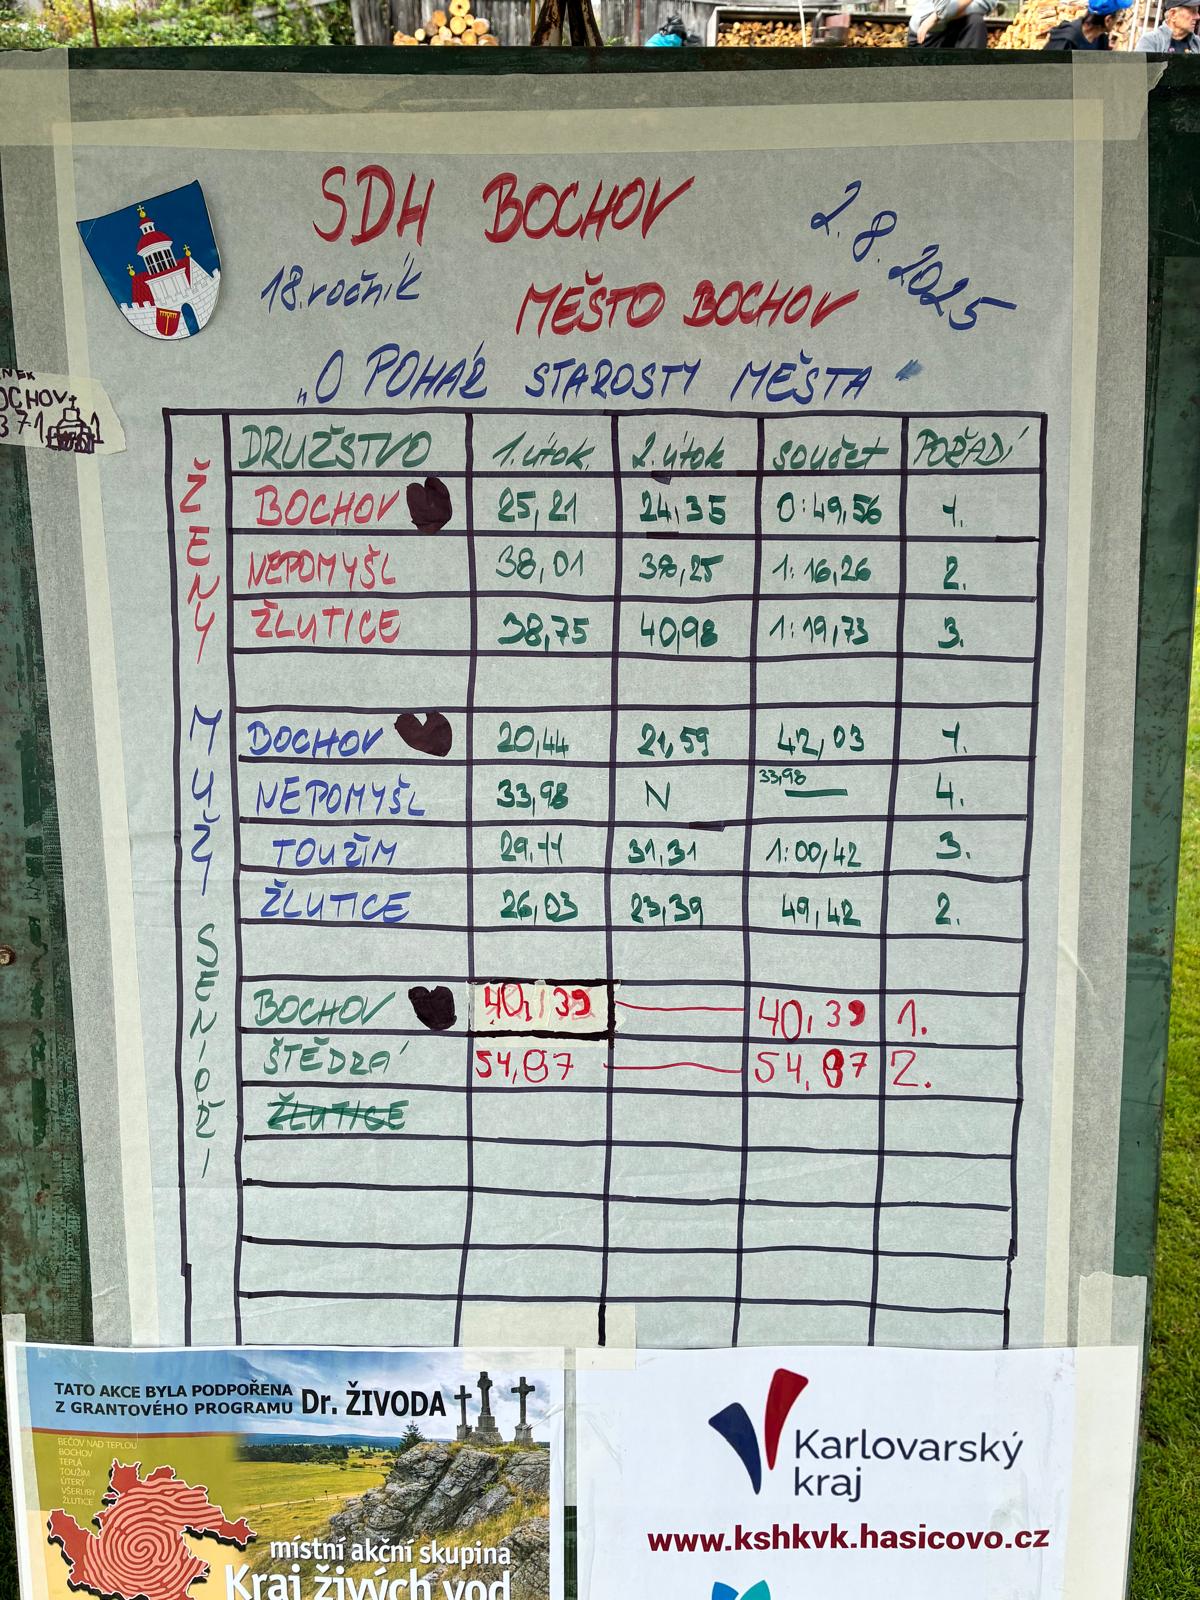 SDH BOCHOV
2.8.2025
18.ročník
MĚSTO BOCHOV
„O POHÁR STAROSTY MĚSTA"
OCHOV
371
DRUŽSTVO 1.útok. 2.útok součet POŘADÍ
ŽENY
BOCHOV 25,21 24,35 0:49,56 1.
NEPOMYŠL 38,01 38,25 1:16,26 2.
ŽLUTICE 38,75 40,98 1:19,73 3.
MUŽI
BOCHOV 20,44 21,59 42,03 1.
NEPOMYŠL 33,98 N 33,98 — 4.
TOUŽIM 29,11 31,31 1:00,42 3.
ŽLUTICE 26,03 23,39 49,42 2.
SENIOŘI
BOCHOV 40,39 — 40,39 1.
ŠTĚDRÁ 54,87 — 54,87 2.
ŽLUTICE
TATO AKCE BYLA PODPOŘENA
Z GRANTOVÉHO PROGRAMU Dr. ŽIVODA
BEČOV NAD TEPLOU
BOCHOV
TEPLÁ
TOUŽIM
ÚTERÝ
VŠERUBY
ŽLUTICE
místní akční skupina
Kraj živých vod
Karlovarský
kraj
www.kshkvk.hasicovo.cz